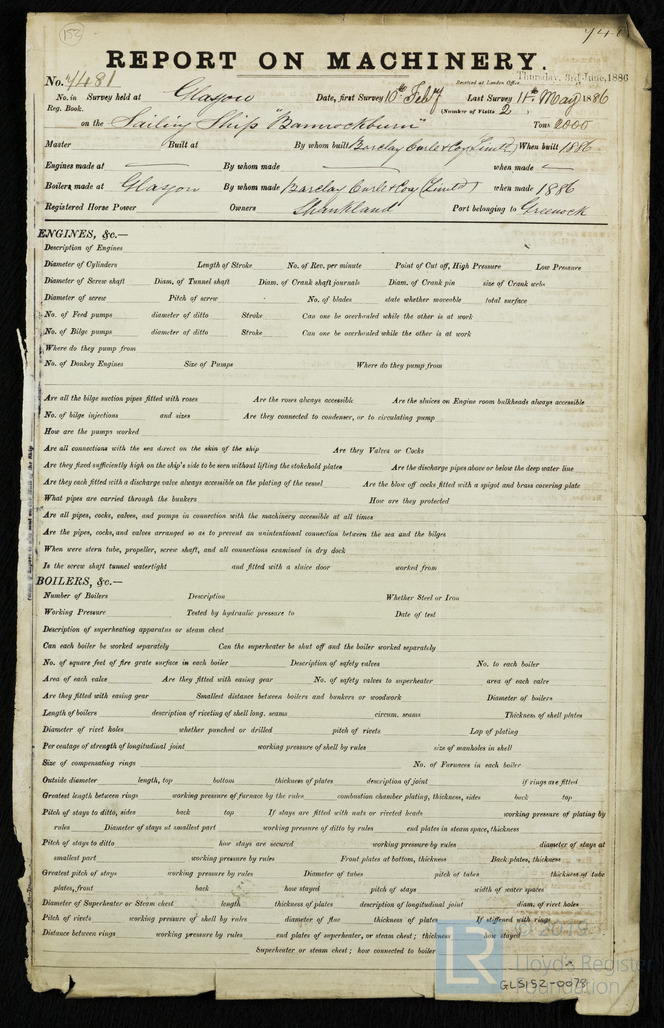 152
REPORT ON MACHINERY.
No. 7481
Received at London Office
Thursday, 3rd June, 1886
No. in Survey held at Glasgow Date, first Survey 10th Feby Last Survey 11th May 1886
Reg. Book.
(Number of Visits 2)
on the Sailing Ship "Bannockburn" Tons 2000
Master Built at By whom built Barclay Curle & Coy (Limtd) When built 1886
Engines made at By whom made when made
Boilers made at Glasgow By whom made Barclay Curle & Coy (Limtd) when made 1886
Registered Horse Power Owners Shankland Port belonging to Greenock
ENGINES, &c.—
Description of Engines
Diameter of Cylinders Length of Stroke No. of Rev. per minute Point of Cut off, High Pressure Low Pressure
Diameter of Screw shaft Diam. of Tunnel shaft Diam. of Crank shaft journals Diam. of Crank pin size of Crank webs
Diameter of screw Pitch of screw No. of blades state whether moveable total surface
No. of Feed pumps diameter of ditto Stroke Can one be overhauled while the other is at work
No. of Bilge pumps diameter of ditto Stroke Can one be overhauled while the other is at work
Where do they pump from
No. of Donkey Engines Size of Pumps Where do they pump from
Are all the bilge suction pipes fitted with roses Are the roses always accessible Are the sluices on Engine room bulkheads always accessible
No. of bilge injections and sizes Are they connected to condenser, or to circulating pump
How are the pumps worked
Are all connections with the sea direct on the skin of the ship Are they Valves or Cocks
Are they fixed sufficiently high on the ship's side to be seen without lifting the stokehold plates Are the discharge pipes above or below the deep water line
Are they each fitted with a discharge valve always accessible on the plating of the vessel Are the blow off cocks fitted with a spigot and brass covering plate
What pipes are carried through the bunkers How are they protected
Are all pipes, cocks, valves, and pumps in connection with the machinery accessible at all times
Are the pipes, cocks, and valves arranged so as to prevent an unintentional connection between the sea and the bilges
When were stern tube, propeller, screw shaft, and all connections examined in dry dock
Is the screw shaft tunnel watertight and fitted with a sluice door worked from
BOILERS, &c.—
Number of Boilers Description Whether Steel or Iron
Working Pressure Tested by hydraulic pressure to Date of test
Description of superheating apparatus or steam chest
Can each boiler be worked separately Can the superheater be shut off and the boiler worked separately
No. of square feet of fire grate surface in each boiler Description of safety valves No. to each boiler
Area of each valve Are they fitted with easing gear No. of safety valves to superheater area of each valve
Are they fitted with easing gear Smallest distance between boilers and bunkers or woodwork Diameter of boilers
Length of boilers description of riveting of shell long. seams circum. seams Thickness of shell plates
Diameter of rivet holes whether punched or drilled pitch of rivets Lap of plating
Per centage of strength of longitudinal joint working pressure of shell by rules size of manholes in shell
Size of compensating rings No. of Furnaces in each boiler
Outside diameter length, top bottom thickness of plates description of joint if rings are fitted
Greatest length between rings working pressure of furnace by the rules combustion chamber plating, thickness, sides back top
Pitch of stays to ditto, sides back top If stays are fitted with nuts or riveted heads working pressure of plating by
rules Diameter of stays at smallest part working pressure of ditto by rules end plates in steam space, thickness
Pitch of stays to ditto how stays are secured working pressure by rules diameter of stays at
smallest part working pressure by rules Front plates at bottom, thickness Back plates, thickness
Greatest pitch of stays working pressure by rules Diameter of tubes pitch of tubes thickness of tube
plates, front back how stayed pitch of stays width of water spaces
Diameter of Superheater or Steam chest length thickness of plates description of longitudinal joint diam. of rivet holes
Pitch of rivets working pressure of shell by rules diameter of flue thickness of plates If stiffened with rings
Distance between rings working pressure by rules end plates of superheater, or steam chest; thickness how stayed
Superheater or steam chest; how connected to boiler
LR
© 2019
Lloyd's Register
Foundation
GLS152-0078